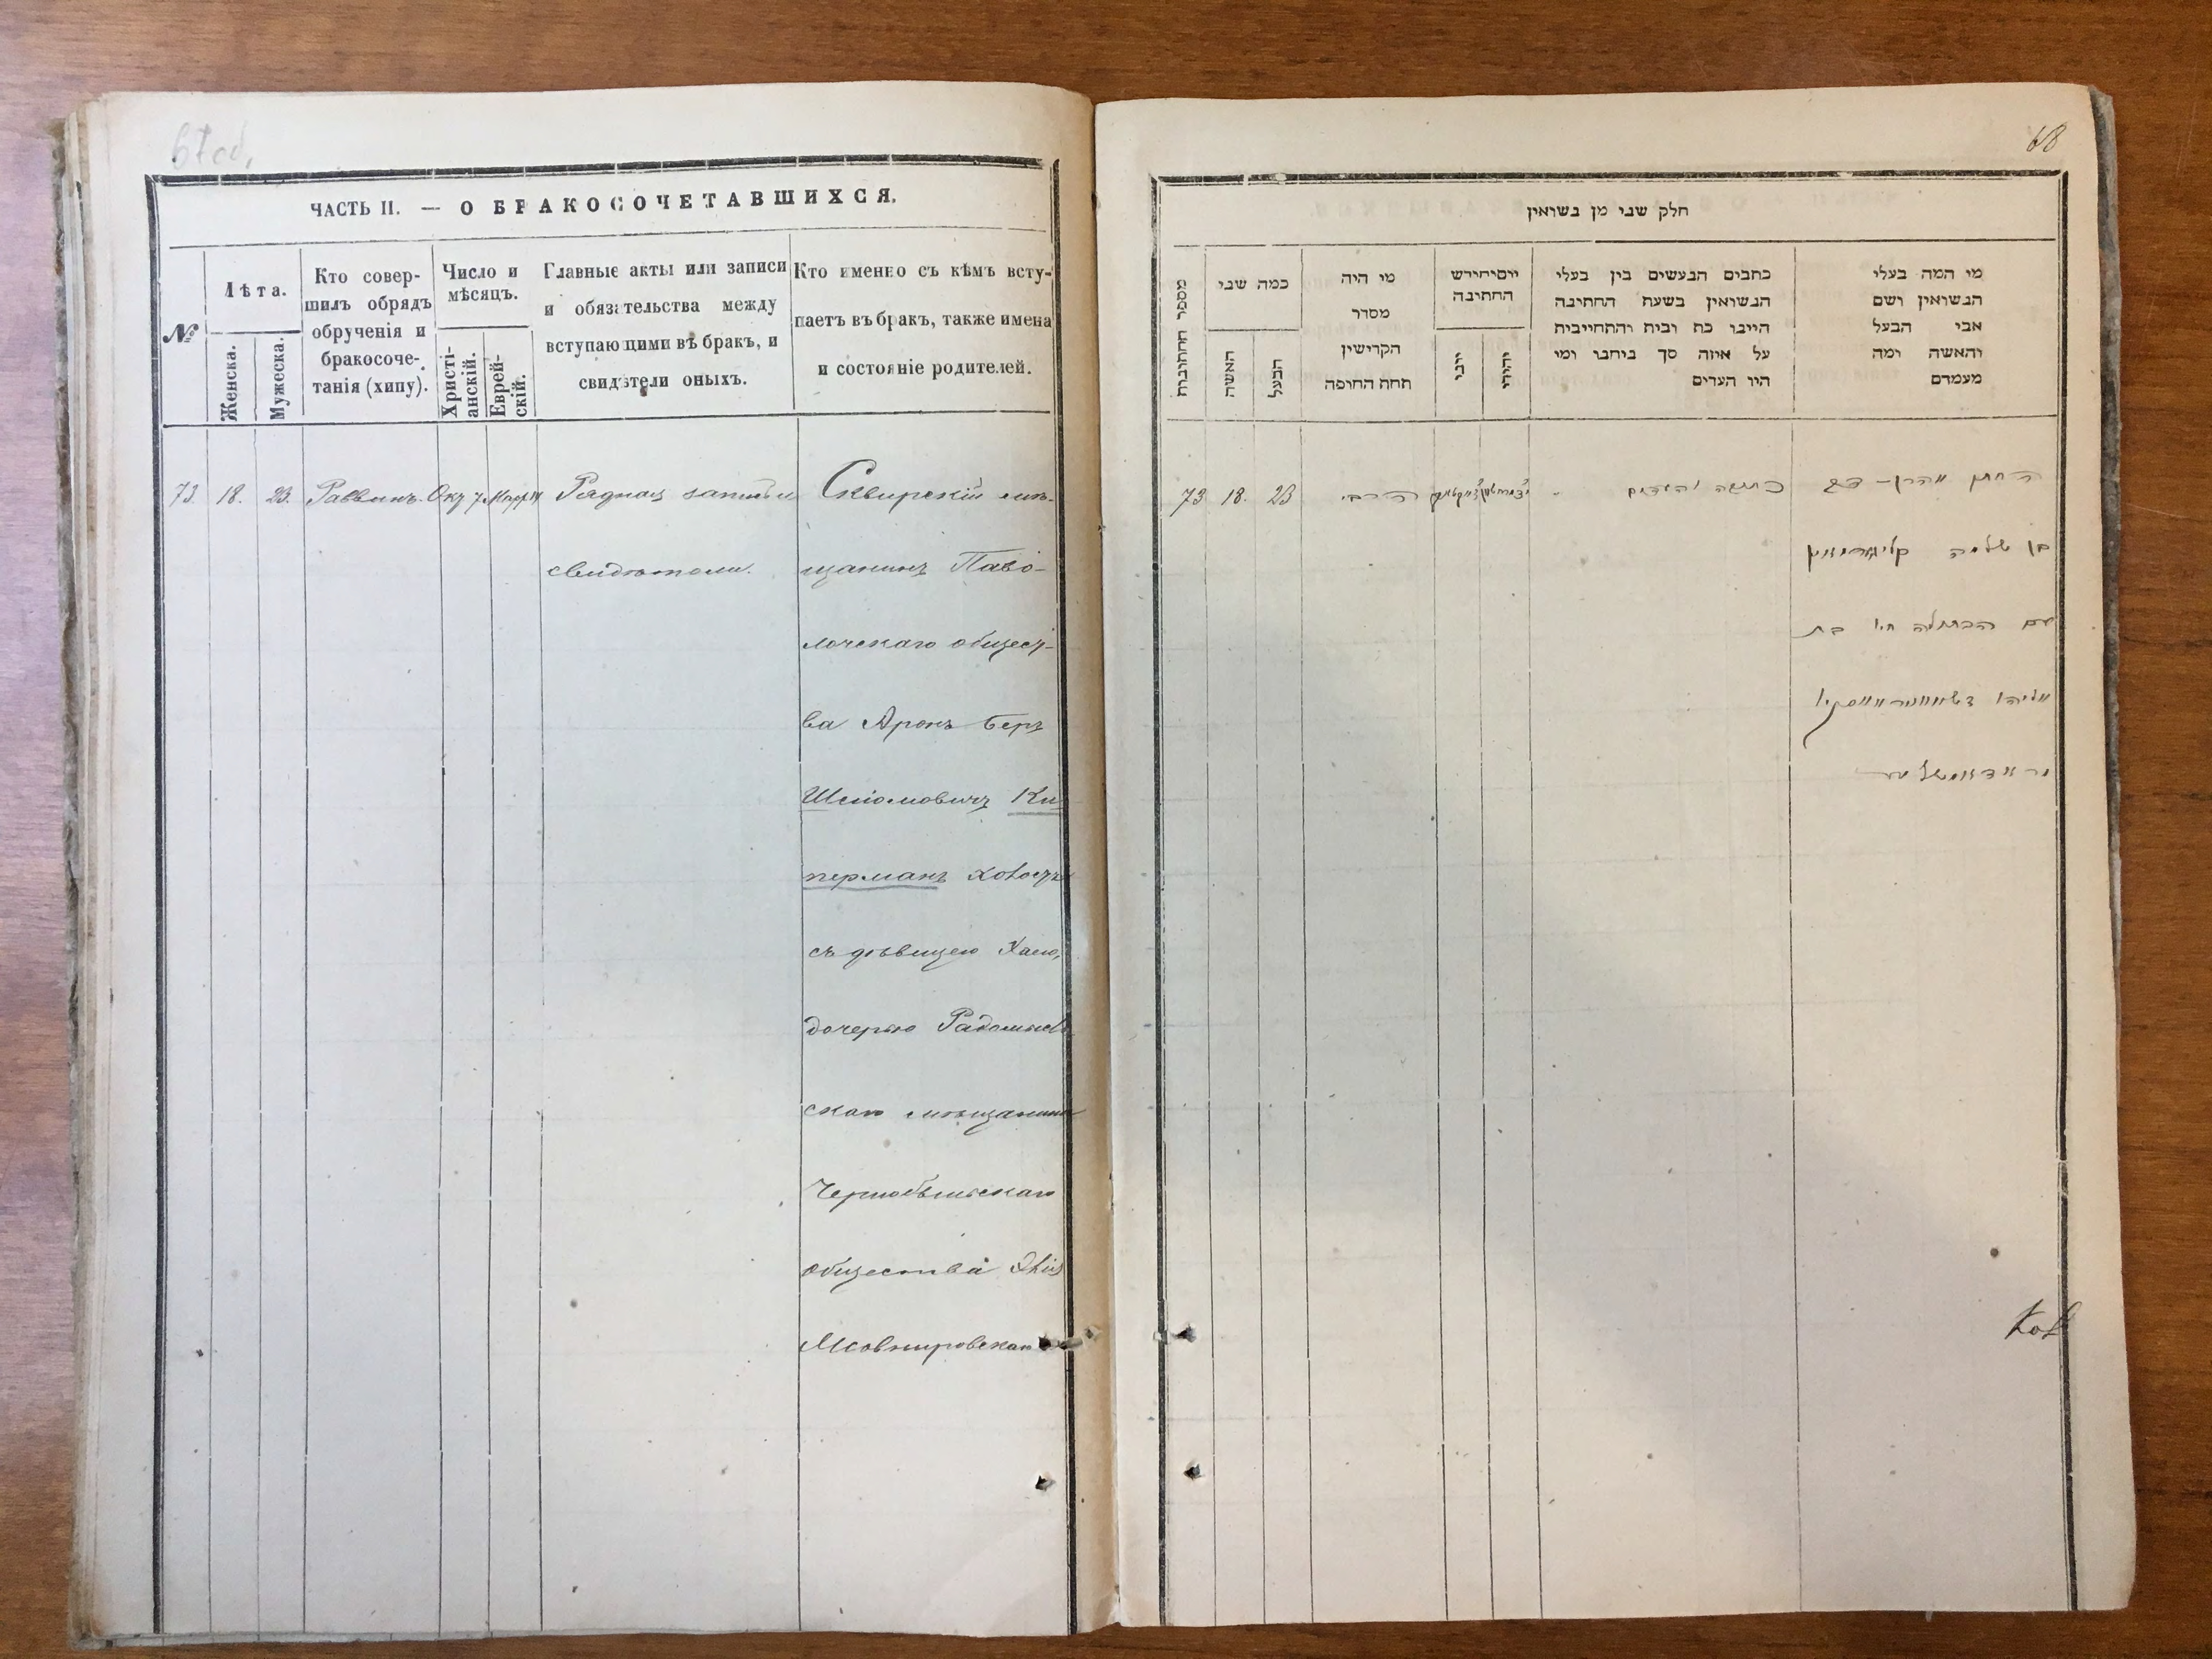 67 об.
ЧАСТЬ II. — О БРАКОСОЧЕТАВШИХСЯ.
№
Лѣта.
Женска.
Мужеска.
Кто совер-
шилъ обрядъ
обрученія и
бракосоче-
танія (хипу).
Число и
мѣсяцъ.
Христі-
анскій.
Еврей-
скій.
Главные акты или записи
и обязательства между
вступающими въ бракъ, и
свидѣтели оныхъ.
Кто именно съ кѣмъ всту-
паетъ въ бракъ, также имена
и состояніе родителей.
73. 18. 23. Раввинъ. Окт 7. Рядная запись и
свидѣтели.
Сквирскій мѣ-
щанинъ Паво-
лочскаго общест-
ва Аронъ Беръ
Шліомовичъ Ки-
перманъ холостъ
съ дѣвицею Хаею,
дочерью Радомысль
скаго мѣщанина
Чернобыльскаго
общества
68
חלק שני מן נשואין
מספר החתונות
כמה שני
האשה
הבעל
מי היה
מסדר
הקדישין
תחת החופה
יום וחודש
החתונה
יוני
יהודי
כתבים הנעשים בין בעלי
הנשואין בשעת החתונה
הייבו כח ובית והתחייבות
על איזה סך ביחבו ומי
היו העדים
מי המה בעלי
הנשואין ושם
אבי הבעל
והאשה ומה
מעמדם
73 18. 23 הרבי כתובה ועדים
החתן אהרן-בער
בן שלמה
עם הבתולה חי' בת
אליהו